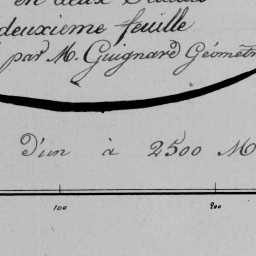 en deux
deuxieme feuille
par M. Guignard Géomètr
D'un à 2500 M
100 200